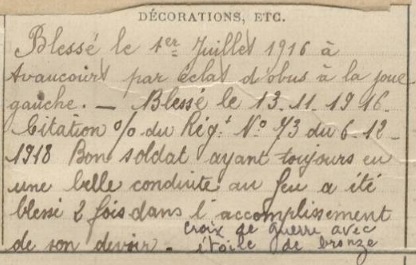 DÉCORATIONS, ETC.
Blessé le 1er Juillet 1916 à
Avaucourt par éclat d'obus à la joue
gauche. — Blessé le 13.11.1916.
Citation % du Régt No 73 du 6-12-
1918 Bon soldat ayant toujours eu
une belle conduite au feu a été
blessé 2 fois dans l'accomplissement
de son devoir. Croix de guerre avec
étoile de bronze